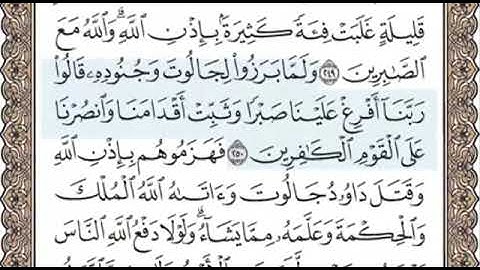 قَلِيلَةٍ غَلَبَتْ فِئَةً كَثِيرَةًۢ بِإِذْنِ ٱللَّهِۗ وَٱللَّهُ مَعَ
ٱلصَّـٰبِرِينَ ۝٢٤٩ وَلَمَّا بَرَزُوا۟ لِجَالُوتَ وَجُنُودِهِۦ قَالُوا۟
رَبَّنَآ أَفْرِغْ عَلَيْنَا صَبْرًا وَثَبِّتْ أَقْدَامَنَا وَٱنصُرْنَا
عَلَى ٱلْقَوْمِ ٱلْكَـٰفِرِينَ ۝٢٥٠ فَهَزَمُوهُم بِإِذْنِ ٱللَّهِ
وَقَتَلَ دَاوُۥدُ جَالُوتَ وَءَاتَىٰهُ ٱللَّهُ ٱلْمُلْكَ
وَٱلْحِكْمَةَ وَعَلَّمَهُۥ مِمَّا يَشَآءُۗ وَلَوْلَا دَفْعُ ٱللَّهِ ٱلنَّاسَ